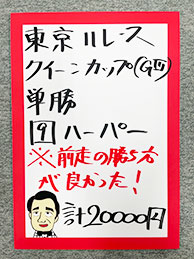 東京11レース
クイーンカップ(GⅢ)
単勝
9 ハーパー
※前走の勝ち方
が良かった!
計20000円